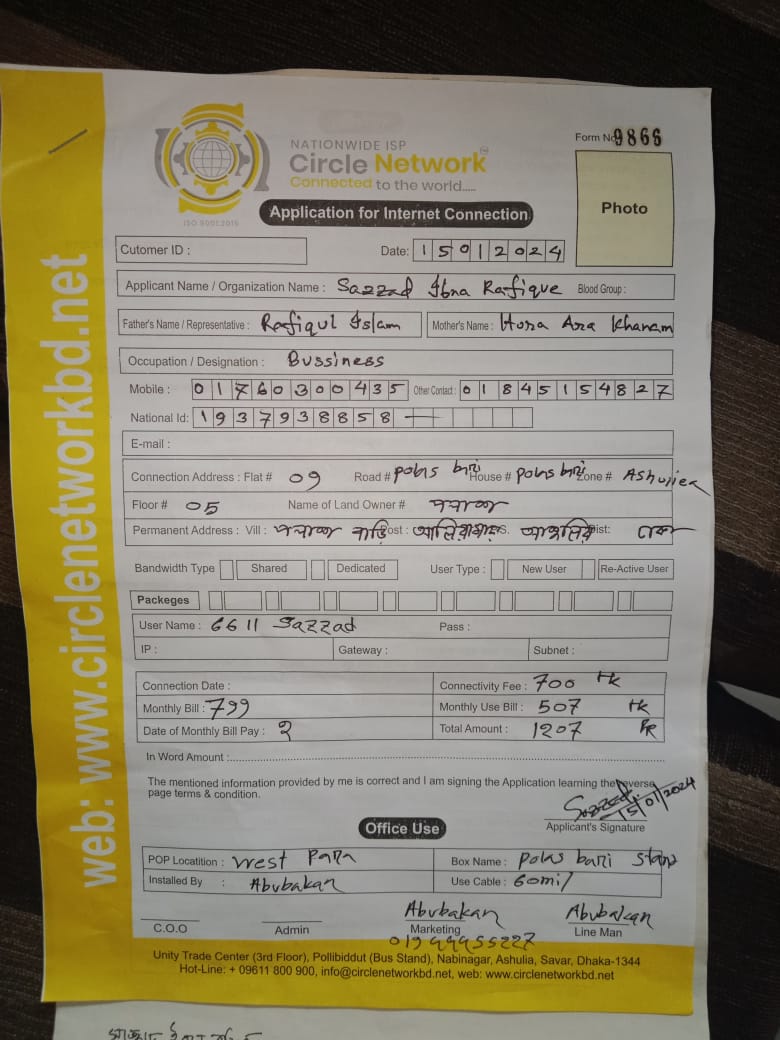 web: www.circlenetworkbd.net
Form No 9866
NATIONWIDE ISP
Circle Network
TM
Connected to the world.....
ISO 9001:2015
Application for Internet Connection
Photo
Cutomer ID :
Date: 15012024
Applicant Name / Organization Name : Sazzad Ibna Rafique Blood Group :
Father's Name / Representative : Rafiqul Islam Mother's Name : Hosna Ara Khanam
Occupation / Designation : Bussiness
Mobile : 01760300435 Other Contact : 01845154827
National Id: 1937938858 —
E-mail :
Connection Address : Flat # 09 Road # House # Zone #
Floor # 05 Name of Land Owner #
Permanent Address : Vill : Post : Dist: ঢাকা
Bandwidth Type Shared Dedicated User Type : New User Re-Active User
Packeges
User Name : 6611 Sazzad Pass :
IP : Gateway : Subnet :
Connection Date : Connectivity Fee : 700 tk
Monthly Bill : 799 Monthly Use Bill : 507 tk
Date of Monthly Bill Pay : 2 Total Amount : 1207
In Word Amount :
The mentioned information provided by me is correct and I am signing the Application learning the reverse
page terms & condition.
Sazzad 15/01/2024
Applicant's Signature
Office Use
POP Locatition : West Para Box Name : bari stand
Installed By : Abubakar Use Cable : 60mil
Abubakar Abubakar
C.O.O Admin Marketing Line Man
Unity Trade Center (3rd Floor), Pollibiddut (Bus Stand), Nabinagar, Ashulia, Savar, Dhaka-1344
Hot-Line: + 09611 800 900, info@circlenetworkbd.net, web: www.circlenetworkbd.net